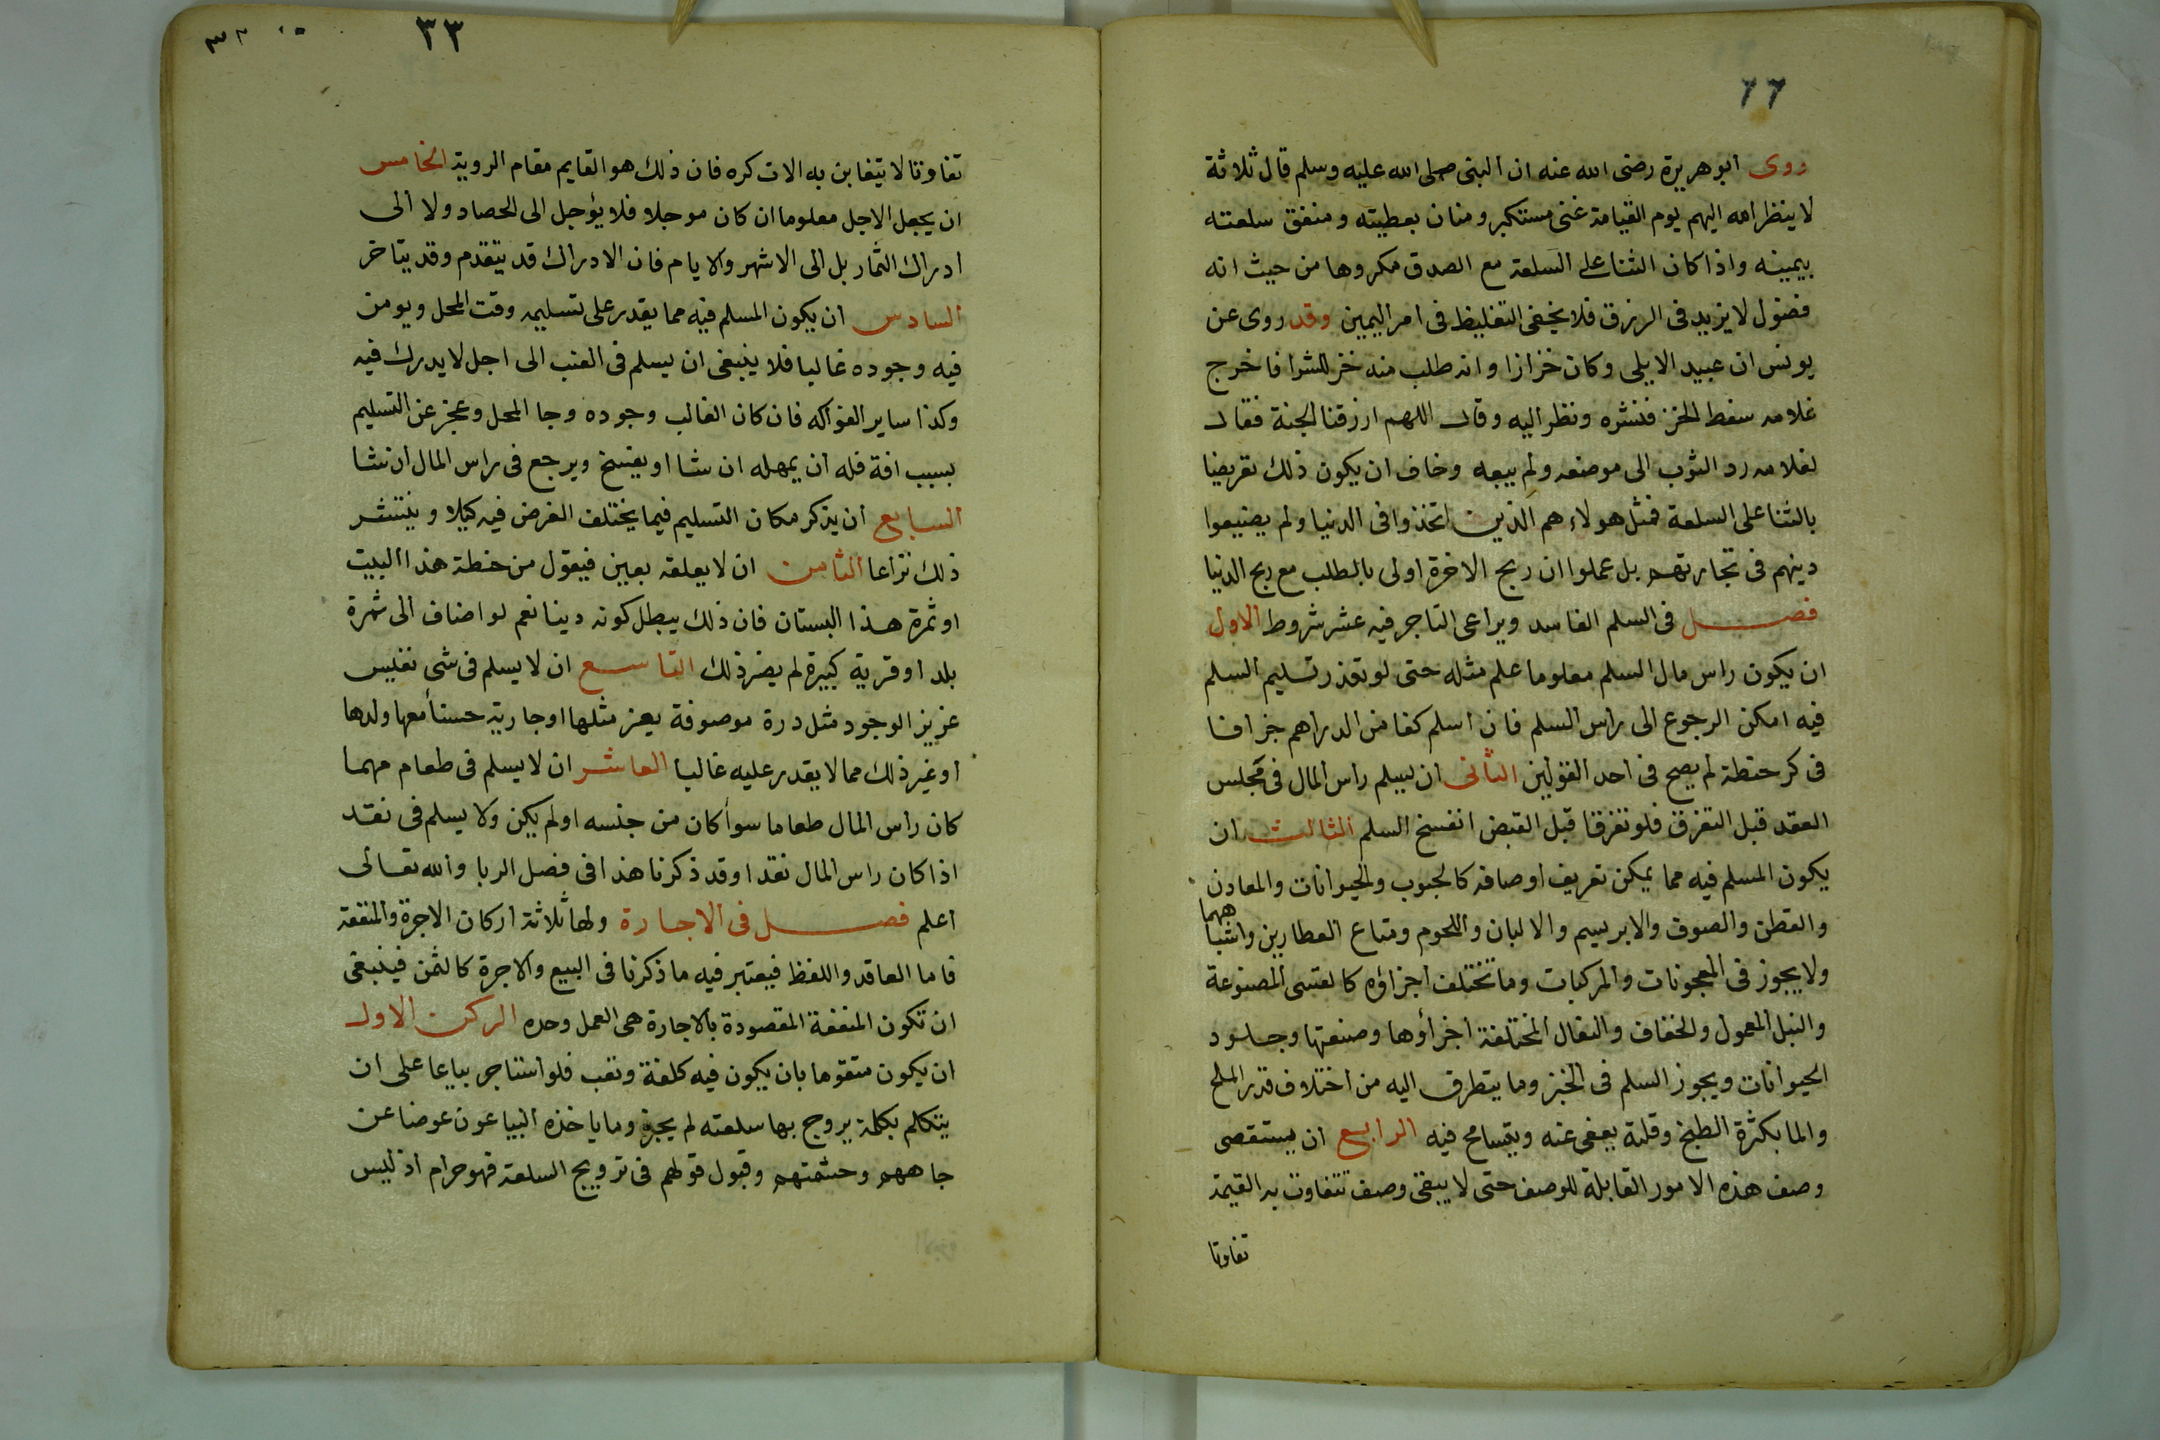 ٦٦
روى ابوهريرة رضى الله عنه ان النبى صلى الله عليه وسلم قال ثلاثة
لا ينظر الله اليهم يوم القيامة غنى مستكبر ومنان بعطيته ومنفق سلعته
بيمينه واذا كان الثنا على السلعة مع الصدق مكروها من حيث انه
فضول لا يزيد فى الرزق فلا يخفى التغليظ فى امر اليمين وقد روى عن
يونس ان عبيد الايلى وكان خزازا وانه طلب منه خز للشرا فاخرج
غلامه سفط الخز فنشره ونظر اليه وقال اللهم ارزقنا الجنة فقال
لغلامه رد الثوب الى موضعه ولم يبعه وخاف ان يكون ذلك تعريضا
بالثنا على السلعة فمثل هولاء هم الذين اتخذوا فى الدنيا ولم يضيعوا
دينهم فى تجارتهم بل عملوا ان ربح الاخرة اولى بالطلب مع ربح الدنيا
فصل فى السلم الفاسد ويراعى التاجر فيه عشر شروط الاول
ان يكون راس مال السلم معلوما علم مثله حتى لو تعذر تسليم السلم
فيه امكن الرجوع الى راس السلم فان اسلم كفا من الدراهم جزافا
فى كر حنطة لم يصح فى احد القولين الثانى ان يسلم راس المال فى مجلس
العقد قبل التفرق فلو تفرقا قبل القبض انفسخ السلم الثالث ان
يكون المسلم فيه مما يمكن تعريف اوصافه كالحبوب والحيوانات والمعادن
والقطن والصوف والابريسم والالبان واللحوم ومتاع العطارين واشباههما
ولا يجوز فى المعجونات والمركبات وما تختلف اجزاؤه كالقسى المصنوعة
والنبل المعمول والخفاف والنعال المختلفة اجزأؤها وصنعتها وجلود
الحيوانات ويجوز السلم فى الخبز وما يتطرق اليه من اختلاف قدر الملح
والما بكثرة الطبخ وقلة يعفى عنه ويتسامح فيه الرابع ان يستقصى
وصف هذه الامور القابلة للوصف حتى لا يبقى وصف تتفاوت به القيمة
تفاوتا
٣٣
تفاوتا لا يتغابن به الات كره فان ذلك هو القايم مقام الروية الخامس
ان يجعل الاجل معلوما ان كان موجلا فلا يؤجل الى الحصاد ولا الى
ادراك الثمار بل الى الاشهر والايام فان الادراك قد يتقدم وقد يتاخر
السادس ان يكون المسلم فيه مما يقدر على تسليمه وقت المحل ويومن
فيه وجوده غالبا فلا ينبغى ان يسلم فى العنب الى اجل لا يدرك فيه
وكذا ساير الفواكه فان كان الغالب وجوده وجا المحل وعجز عن التسليم
بسبب افة فله ان يمهله ان شا او يفسخ ويرجع فى راس المال ان شا
السابع ان يذكر مكان التسليم فيما يختلف الغرض فيه كيلا وينتشر
ذلك نزاعا الثامن ان لا يعلقه بعين فيقول من حنطة هذا البيت
او ثمرة هذا البستان فان ذلك يبطل كونه دينا نعم لو اضاف الى ثمرة
بلد او قرية كبيرة لم يضر ذلك التاسع ان لا يسلم فى شى نفيس
عزيز الوجود مثل درة موصوفة يعز مثلها او جارية حسنأ معها ولدها
او غير ذلك مما لا يقدر عليه غالبا العاشر ان لا يسلم فى طعام مهما
كان راس المال طعاما سوأ كان من جنسه او لم يكن ولا يسلم فى نقد
اذا كان راس المال نقدا وقد ذكرنا هذا فى فصل الربا والله تعالى
اعلم فصل فى الاجارة ولها ثلاثة اركان الاجرة والمنفعة
فاما العاقد واللفظ فيعتبر فيه ما ذكرنا فى البيع والاجرة كالثمن فينبغى
ان تكون المنفعة المقصودة بالاجارة هى العمل وحده الركن الاول
ان يكون متقوما بان يكون فيه كلفة وتعب فلو استاجر بياعا على ان
يتكلم بكلمة يروج بها سلعته لم يجزه وما ياخذه البياعون عوضا عن
جاههم وحشمتهم وقبول قولهم فى ترويج السلعة فهو حرام اذ ليس